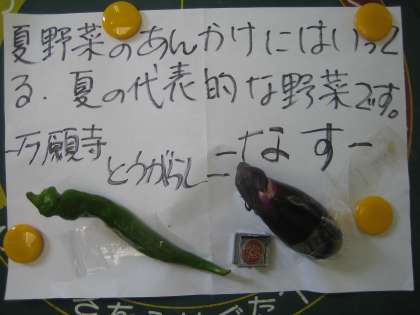 夏野菜のあんかけにはいって
る、夏の代表的な野菜です。
万願寺
とうがらし
なす